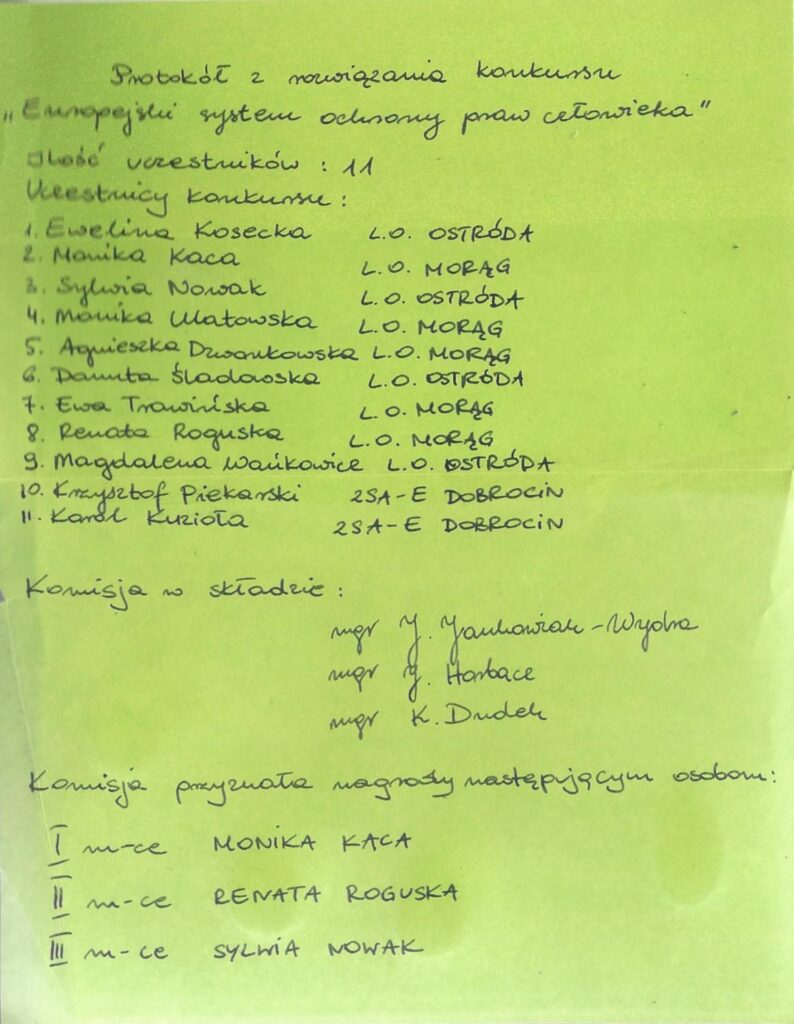 Protokół z rozwiązania konkursu
"Europejski system ochrony praw człowieka"
Ilość uczestników : 11
Uczestnicy konkursu :
1. Ewelina Kosecka L.O. OSTRÓDA
2. Monika Kaca L.O. MORĄG
3. Sylwia Nowak L.O. OSTRÓDA
4. Monika Ulatowska L.O. MORĄG
5. Agnieszka Dzwonkowska L.O. MORĄG
6. Danuta Śladowska L.O. OSTRÓDA
7. Ewa Trawińska L.O. MORĄG
8. Renata Roguska L.O. MORĄG
9. Magdalena Wańkowicz L.O. OSTRÓDA
10. Krzysztof Piekarski ZSA-E DOBROCIN
11. Karol Kuzioła ZSA-E DOBROCIN
Komisja w składzie :
mgr J. Jankowiak-Wydra
mgr J. Harbacz
mgr K. Dudek
Komisja przyznała nagrody następującym osobom:
I m-ce MONIKA KACA
II m-ce RENATA ROGUSKA
III m-ce SYLWIA NOWAK